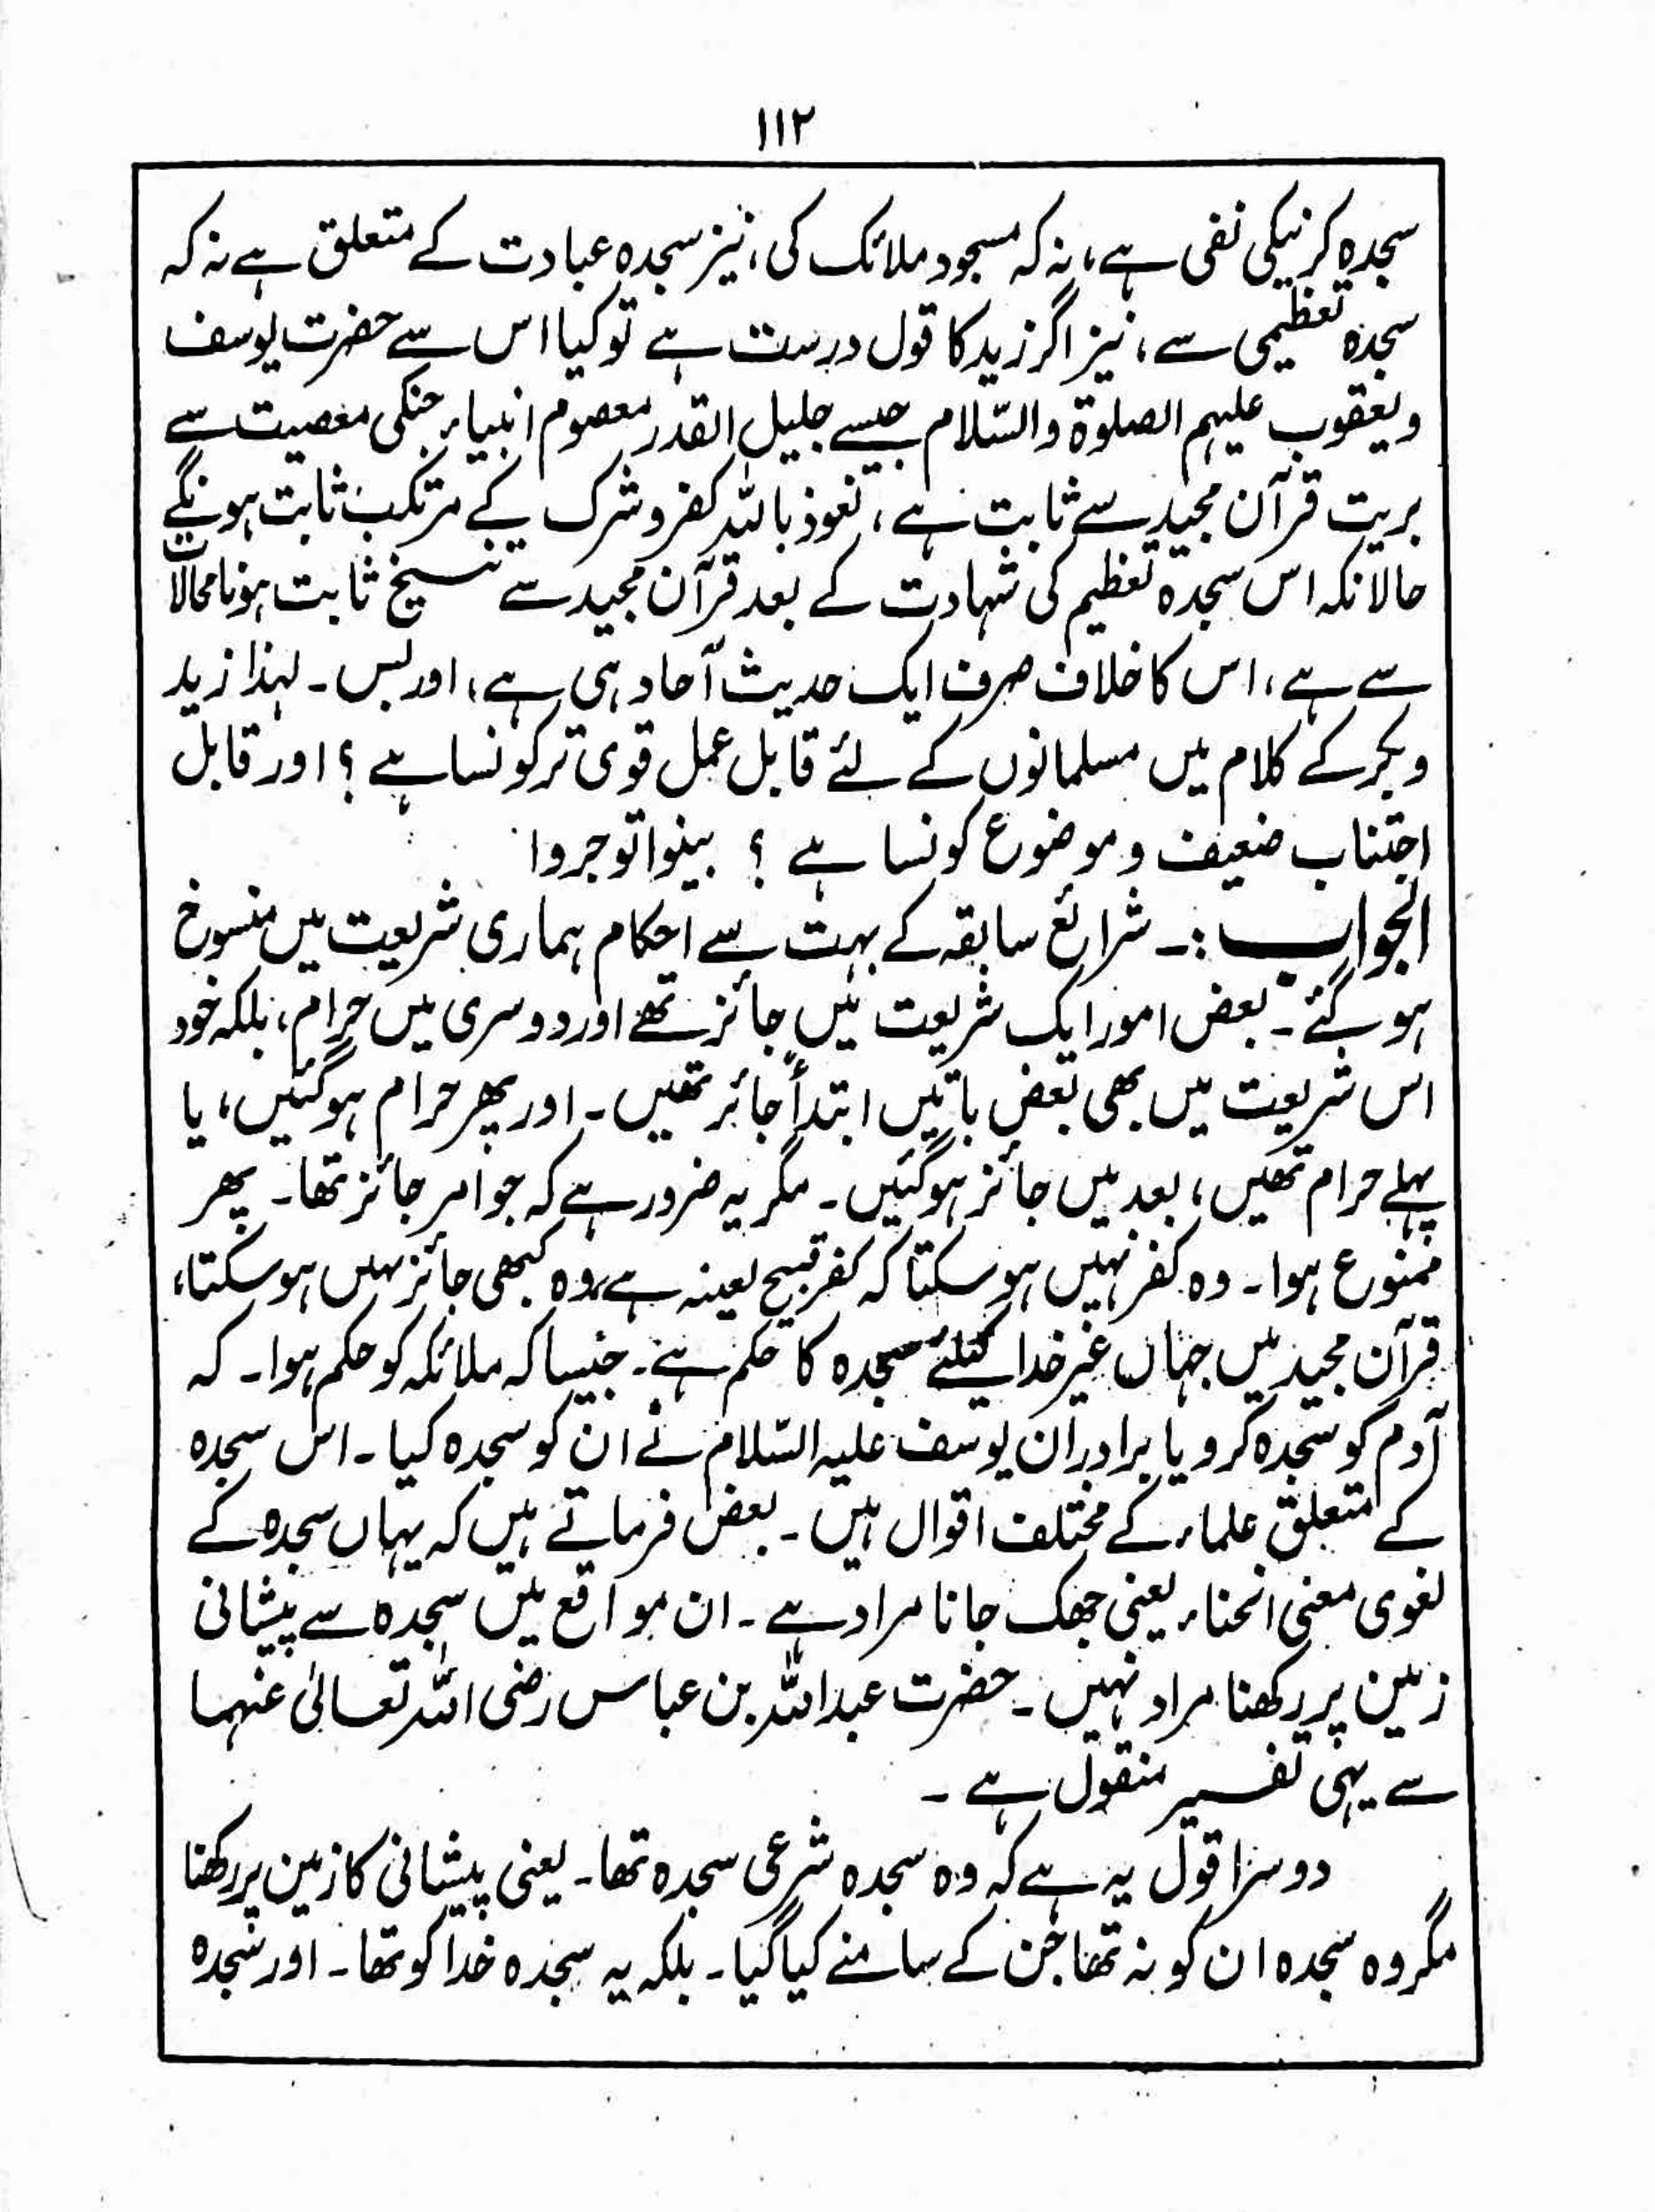 ۱۱۲
سجدہ کرنیکی نفی ہے، نہ کہ مسجود ملائک کی، نیز سجدہ عبادت کے متعلق ہے نہ کہ
سجدہ تعظیمی سے، نیز اگر زید کا قول درست ہے تو کیا اس سے حضرت یوسف
ویعقوب علیہم الصلوۃ والسّلام جیسے جلیل القدر معصوم انبیاء جنکی معصیت سے
بریت قرآن مجید سے ثابت ہے، نعوذ باللہ کفر و شرک کے مرتکب ثابت ہونگے
حالانکہ اس سجدہ تعظیم کی شہادت کے بعد قرآن مجید سے تنسیخ ثابت ہونا محالات
سے ہے، اس کا خلاف صرف ایک حدیث آحاد ہی ہے، اور بس۔ لہٰذا زید
و بکر کے کلام میں مسلمانوں کے لئے قابل عمل قوی تر کونسا ہے؟ اور قابل
اجتناب ضعیف و موضوع کونسا ہے ؟ بینوا توجروا
الجواب :۔ شرائع سابقہ کے بہت سے احکام ہماری شریعت میں منسوخ
ہو گئے۔ بعض امور ایک شریعت میں جائز تھے اور دوسری میں حرام، بلکہ خود
اس شریعت میں بھی بعض باتیں ابتداً جائز تھیں۔ اور پھر حرام ہوگئیں، یا
پہلے حرام تھیں، بعد میں جائز ہوگئیں۔ مگر یہ ضرور ہے کہ جو امر جائز تھا۔ پھر
ممنوع ہوا۔ وہ کفر نہیں ہو سکتا کہ کفر قبیح لعینہ ہے، وہ کبھی جائز نہیں ہو سکتا،
قرآن مجید میں جہاں غیر خدا کیلئے سجدہ کا حکم ہے۔ جیسا کہ ملائکہ کو حکم ہوا۔ کہ
آدم کو سجدہ کرو یا برادران یوسف علیہ السّلام نے ان کو سجدہ کیا۔ اس سجدہ
کے متعلق علماء کے مختلف اقوال ہیں۔ بعض فرماتے ہیں کہ یہاں سجدہ کے
لغوی معنی انحناء یعنی جھک جانا مراد ہے۔ ان مواقع میں سجدہ سے پیشانی
زمین پر رکھنا مراد نہیں۔ حضرت عبداللہ بن عباس رضی اللہ تعالیٰ عنہما
سے یہی تفسیر منقول ہے ۔
دوسرا قول یہ ہے کہ وہ سجدہ شرعی سجدہ تھا۔ یعنی پیشانی کا زمین پر رکھنا
مگر وہ سجدہ ان کو نہ تھا جن کے سامنے کیا گیا۔ بلکہ یہ سجدہ خدا کو تھا۔ اور سجدہ